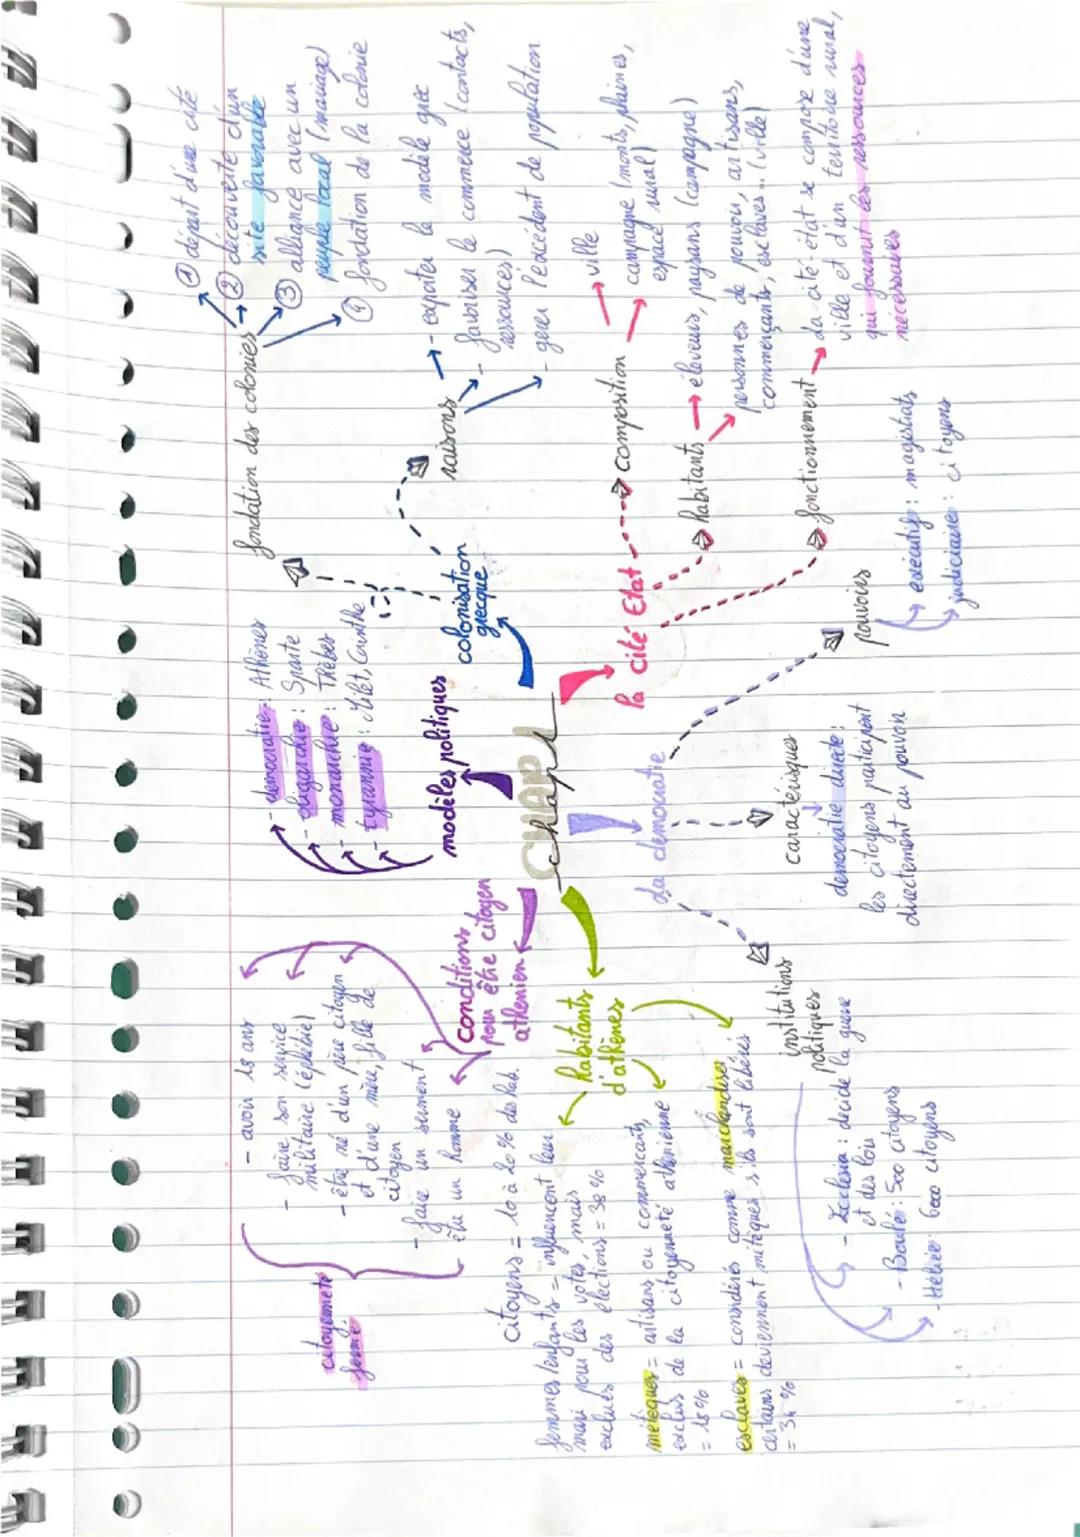 chap 1
CHAP 1
modèles politiques
- démocratie : Athènes
- oligarchie : Sparte
- monarchie : Thèbes
- tyrannie : Milet, Corinthe
colonisation
grecque
fondation des colonies
① départ d'une cité
② découverte d'un
site favorable
③ alliance avec un
peuple local (mariage)
④ fondation de la colonie
raisons
- exporter le modèle grec
- favoriser le commerce (contacts,
ressources)
- gérer l'éxcédent de population
la cité Etat
composition
ville
campagne (monts, plaines,
espace rural)
habitants
éleveurs, paysans (campagne)
personnes de pouvoir, artisans,
commerçants, esclaves... (ville)
fonctionnement
La cité-état se compose d'une
ville et d'un territoire rural,
qui fournit les ressources
nécessaires
La démocratie
pouvoirs
exécutifs : magistrats
judiciaires : citoyens
caractérisques
démocratie directe :
les citoyens participent
directement au pouvoir
institutions
politiques
- Ecclesia : décide la guerre
et des lois
- Boulé : 500 citoyens
- Héliée : 6000 citoyens
habitants
d'athènes
citoyens = 10 à 20 % des hab.
femmes/enfants = influencent leur
mari pour les votes, mais
exclues des élections = 38 %
métèques = artisans ou commerçants,
exclus de la citoyenneté athénienne
= 18 %
esclaves = considérés comme marchandises ;
certains deviennent métèques s'ils sont libérés
= 34 %
conditions
pour être citoyen
athenien
- avoir 18 ans
- faire son service
militaire (éphébie)
- être né d'un père citoyen
et d'une mère, fille de
citoyen
- faire un serment
- être un homme
citoyenneté
fermé